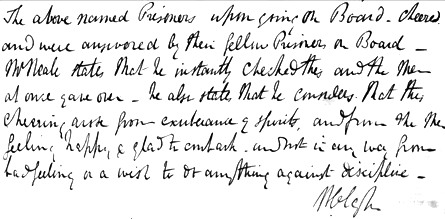 The above named Prisoners upon going on Board - cheered
and were answered by their fellow Prisoners on Board -
Mr Neale states that he instantly checked this and the Men
at once gave over - he also states that he considers that this
cheering arose from exuberance of spirits, and from the Men
feeling happy & glad to embark - and not in any way from
bad feeling or a wish to do anything against discipline -